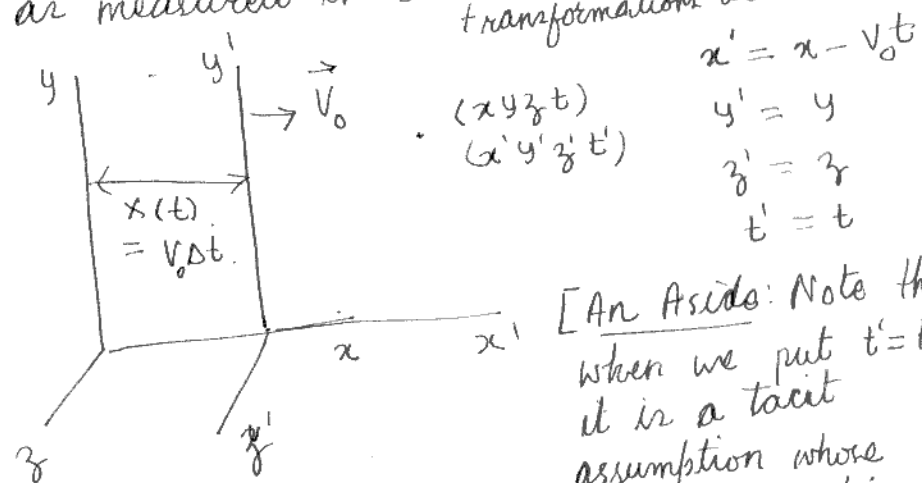 as measured
transformations
y
y'
V₀
x(t)
= V₀Δt.
x
x'
z
z'
(x y z t)
(x' y' z' t')
x' = x - V₀t
y' = y
z' = z
t' = t
[An Aside: Note
when we put t' =
it is a tacit
assumption whose